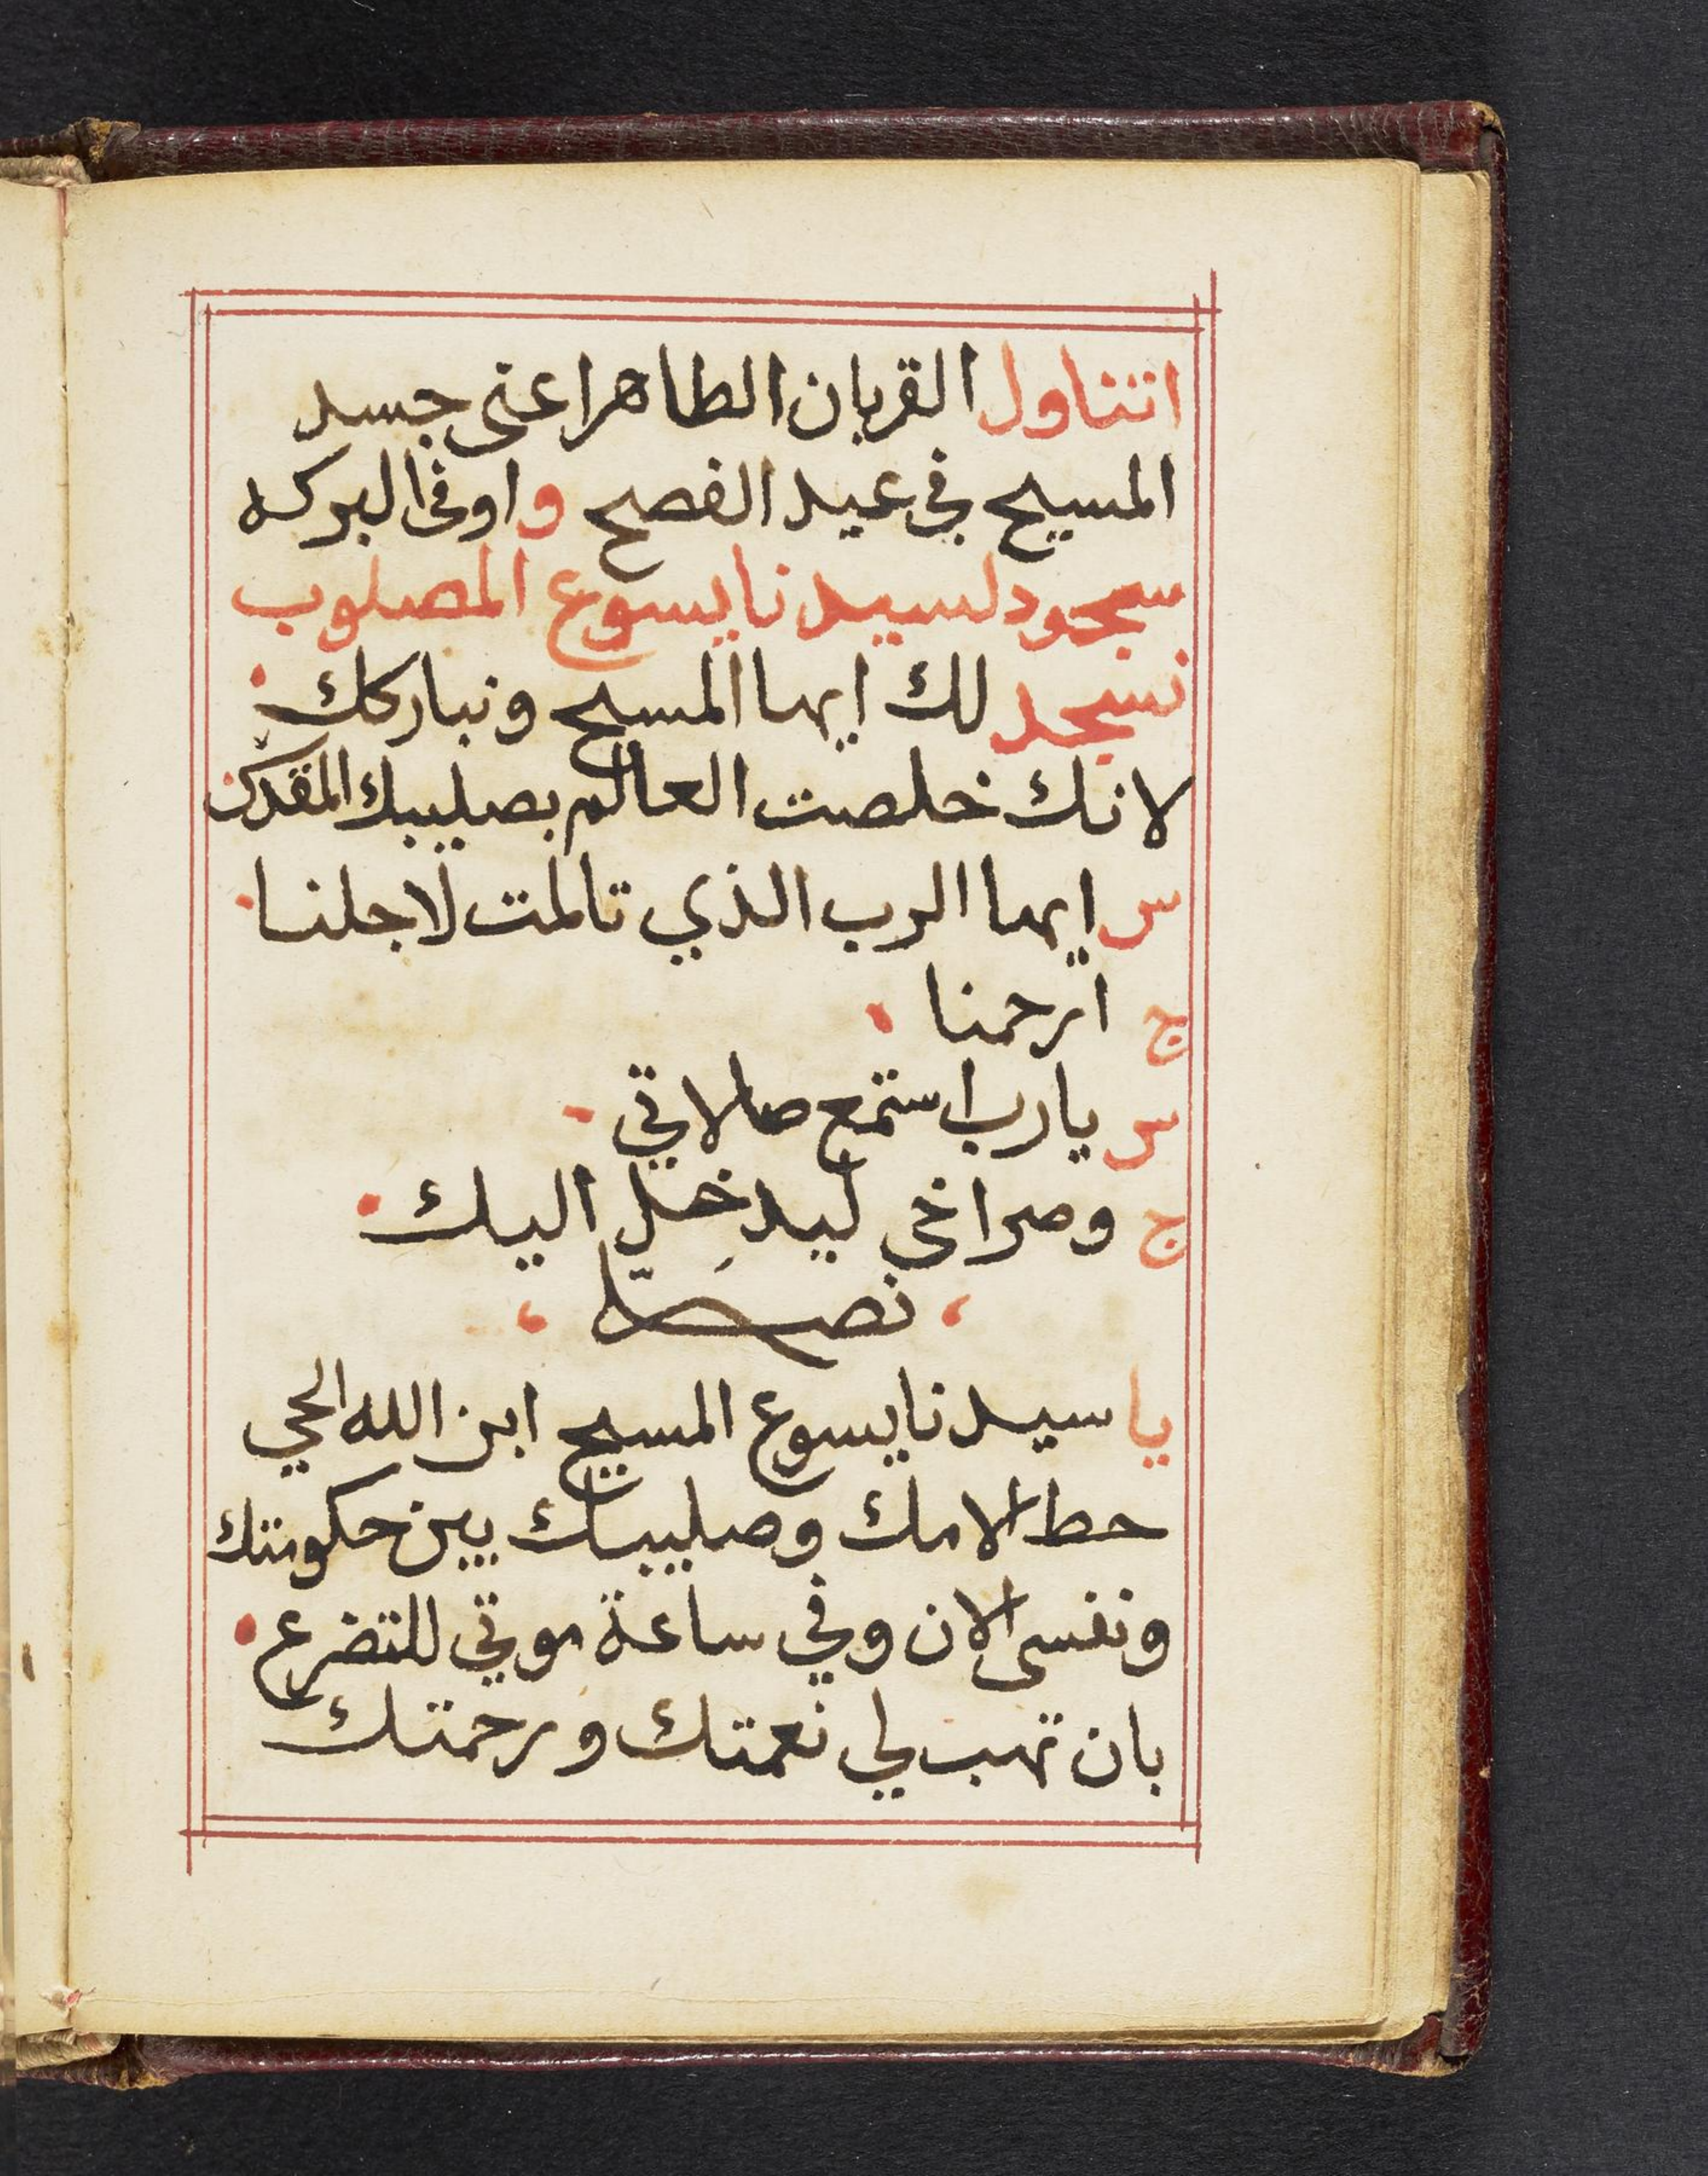 اتناول القربان الطاهر اعنى جسد
المسيح في عيد الفصح و اوفى البركه
سجود لسيدنا يسوع المصلوب
نسجد لك ايها المسيح ونباركك
لانك خلصت العالم بصليبك المقدس
س ايها الرب الذي تالمت لاجلنا
ج ارحمنا
س يارب استمع صلاتي
ج وصراخي ليدخل اليك
نصلّ
يا سيدنا يسوع المسيح ابن الله الحي
حط الامك وصليبك بين حكومتك
ونفسى الان وفي ساعة موتي للتضرع
بان تهب لي نعمتك ورحمتك